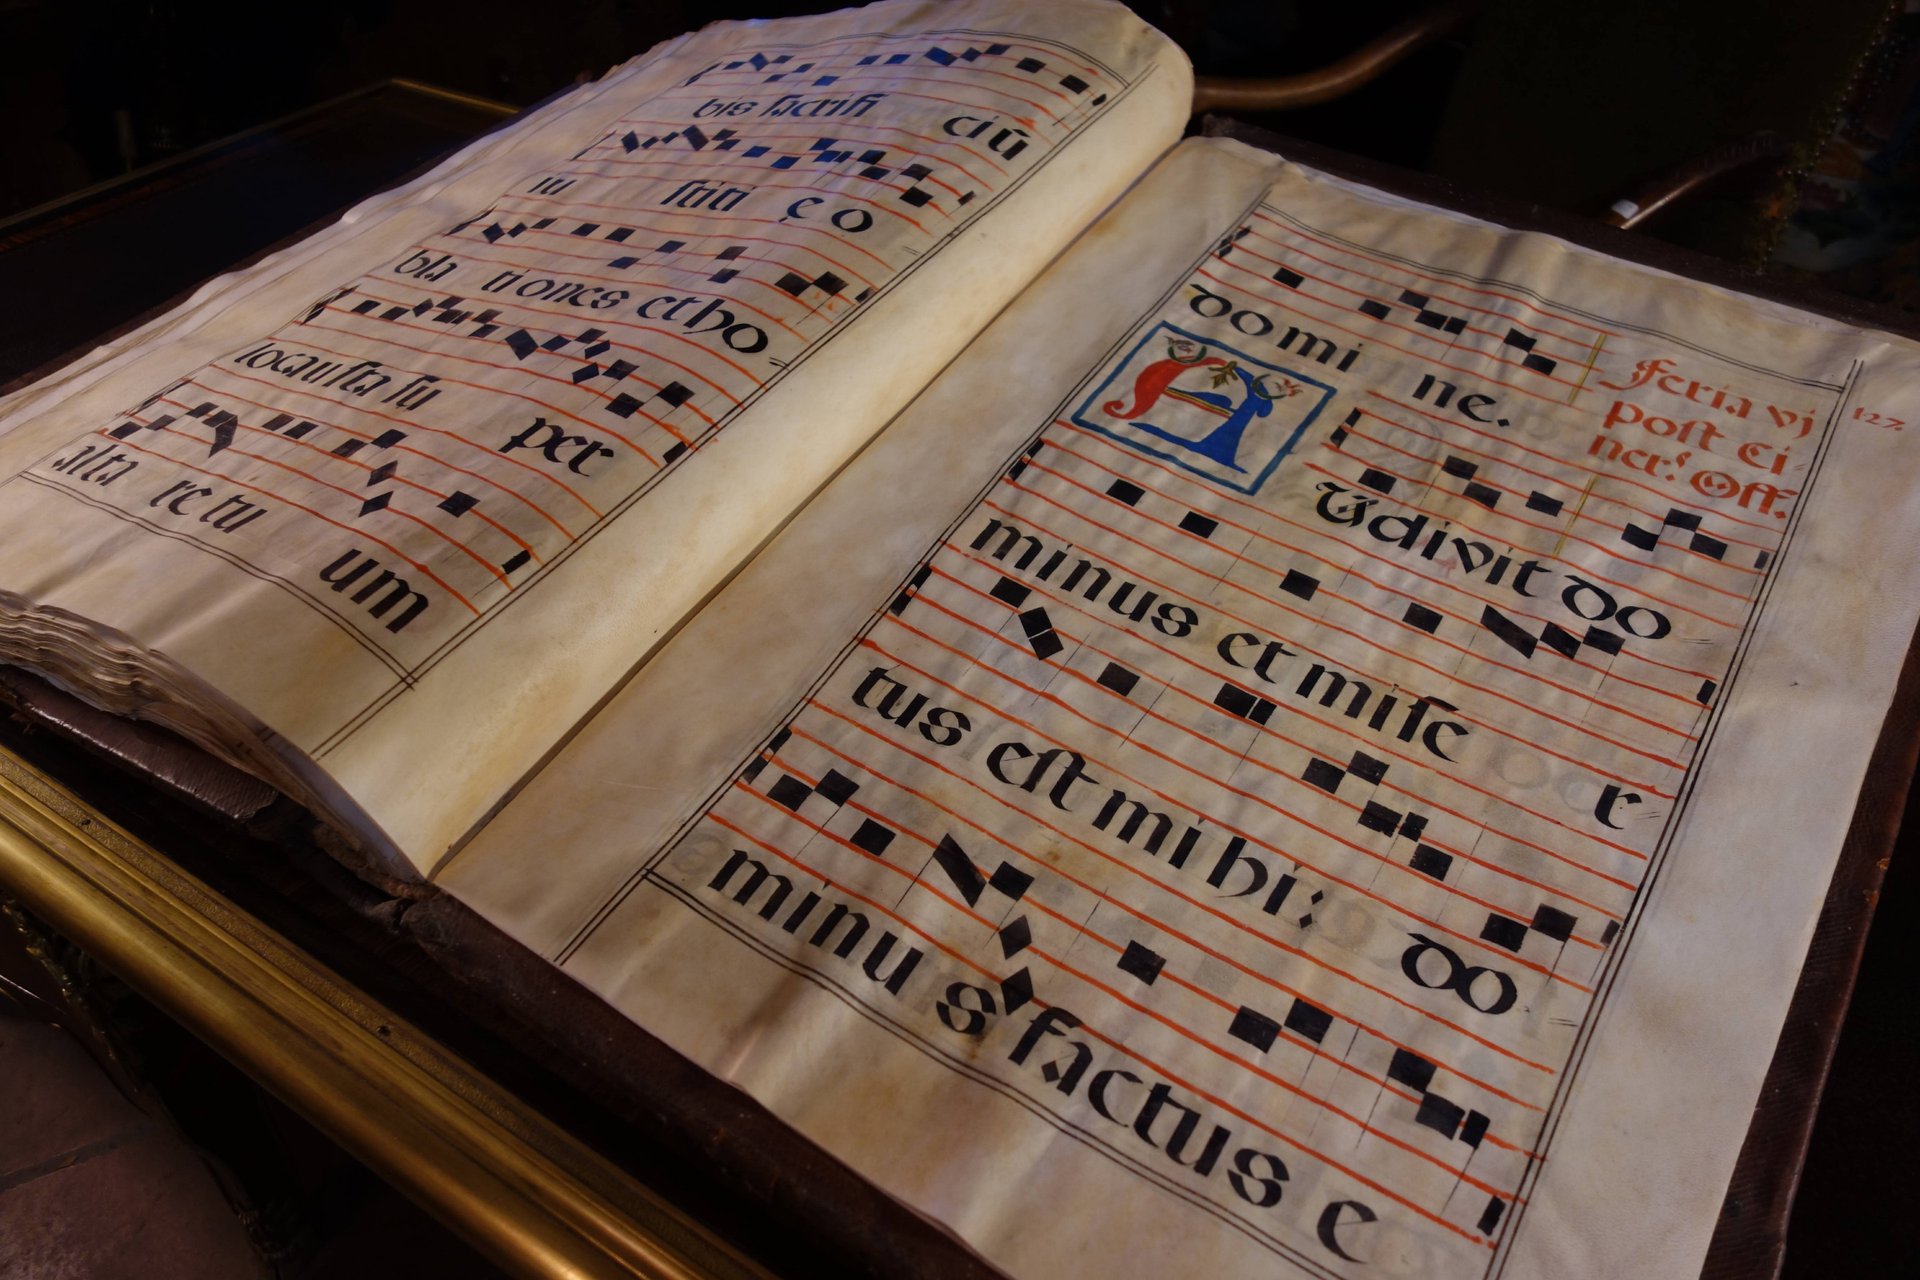 bis sacrifi ciū
iu stiti ę o
bla ti ones et ho
locausta su per
alta re tu um
domi ne.
Feria vj
post Ci
ner⁹. Off.
127.
A Vdivit do
minus et mise r
tus est mihi: do
minu s factus e